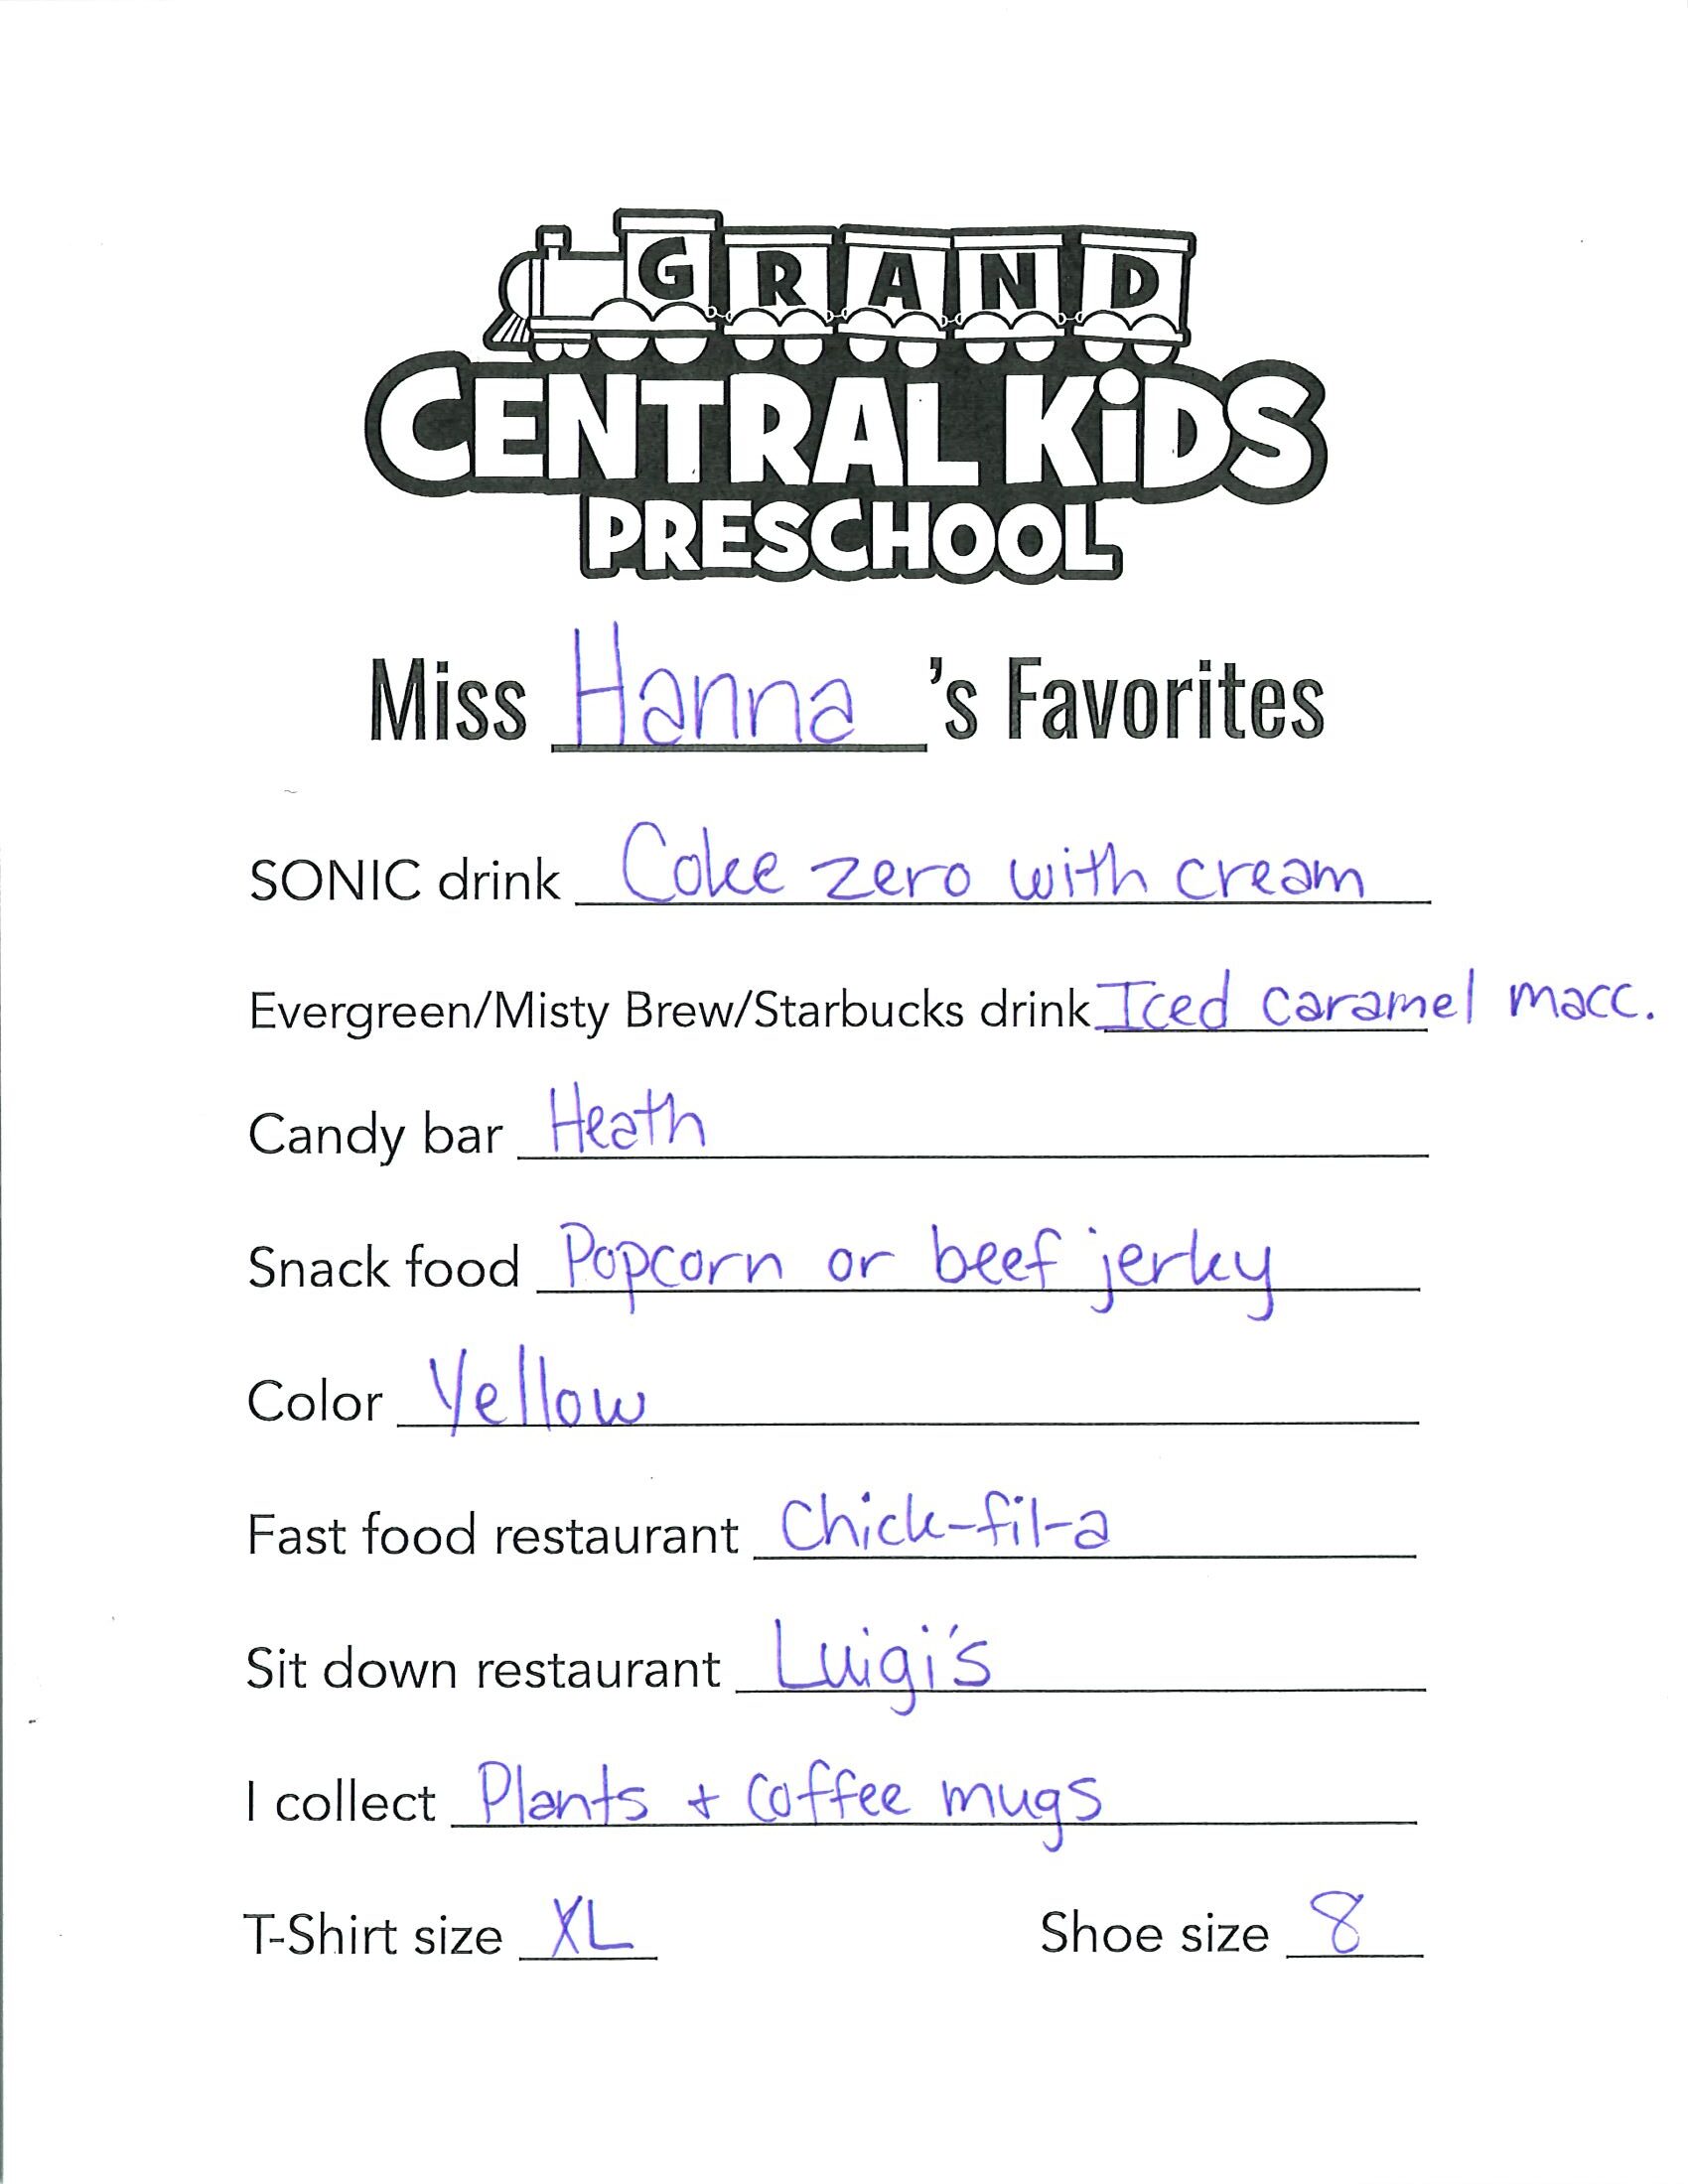 GRAND
CENTRAL KiDS
PRESCHOOL
Miss Hanna 's Favorites
SONIC drink Coke zero with cream
Evergreen/Misty Brew/Starbucks drink Iced caramel macc.
Candy bar Heath
Snack food Popcorn or beef jerky
Color Yellow
Fast food restaurant Chick-fil-a
Sit down restaurant Luigi's
I collect Plants + coffee mugs
T-Shirt size XL Shoe size 8